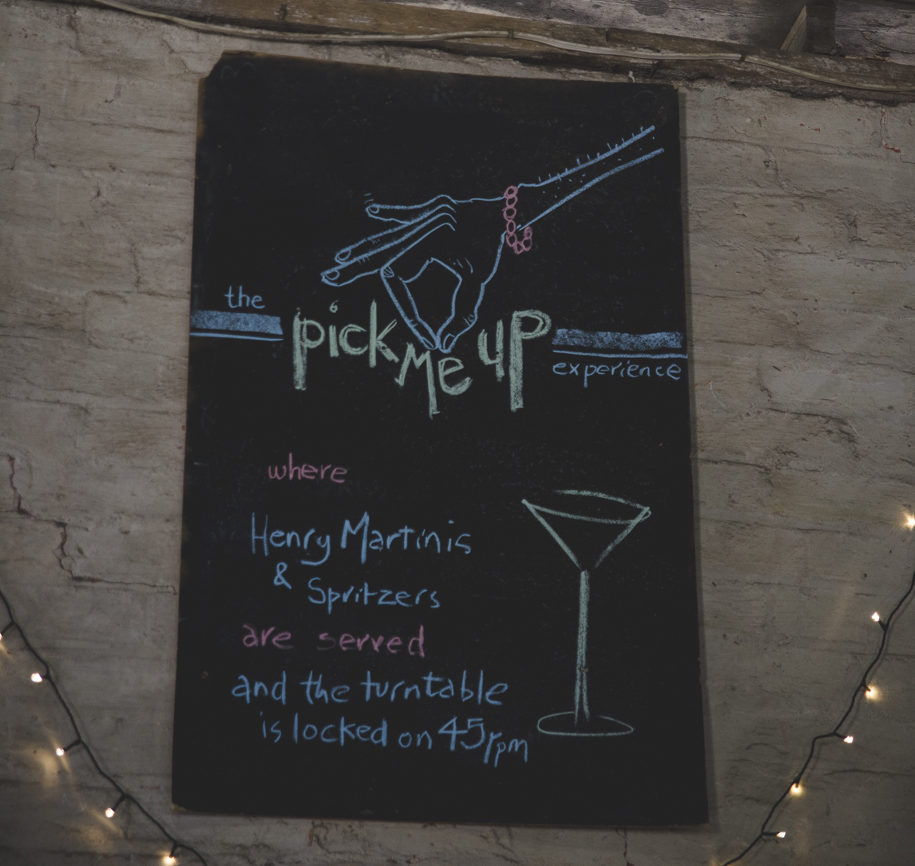 the
pick me up
experience
where
Henry Martinis
& Spritzers
are served
and the turntable
is locked on 45rpm